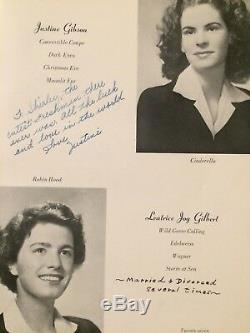 Justine Gibson
Convertible Coupe
Dark Eyes
Christmas Eve
Moonlit Eye
To Shirley, the
cutest freshman there
ever was. All the luck
and love in the world
Love, Justine
Cinderella
Robin Hood
Leatrice Joy Gilbert
Wild Goose Calling
Edelweiss
Wagner
Storm at Sea
~ Married & Divorced
several times ~
Twenty-seven